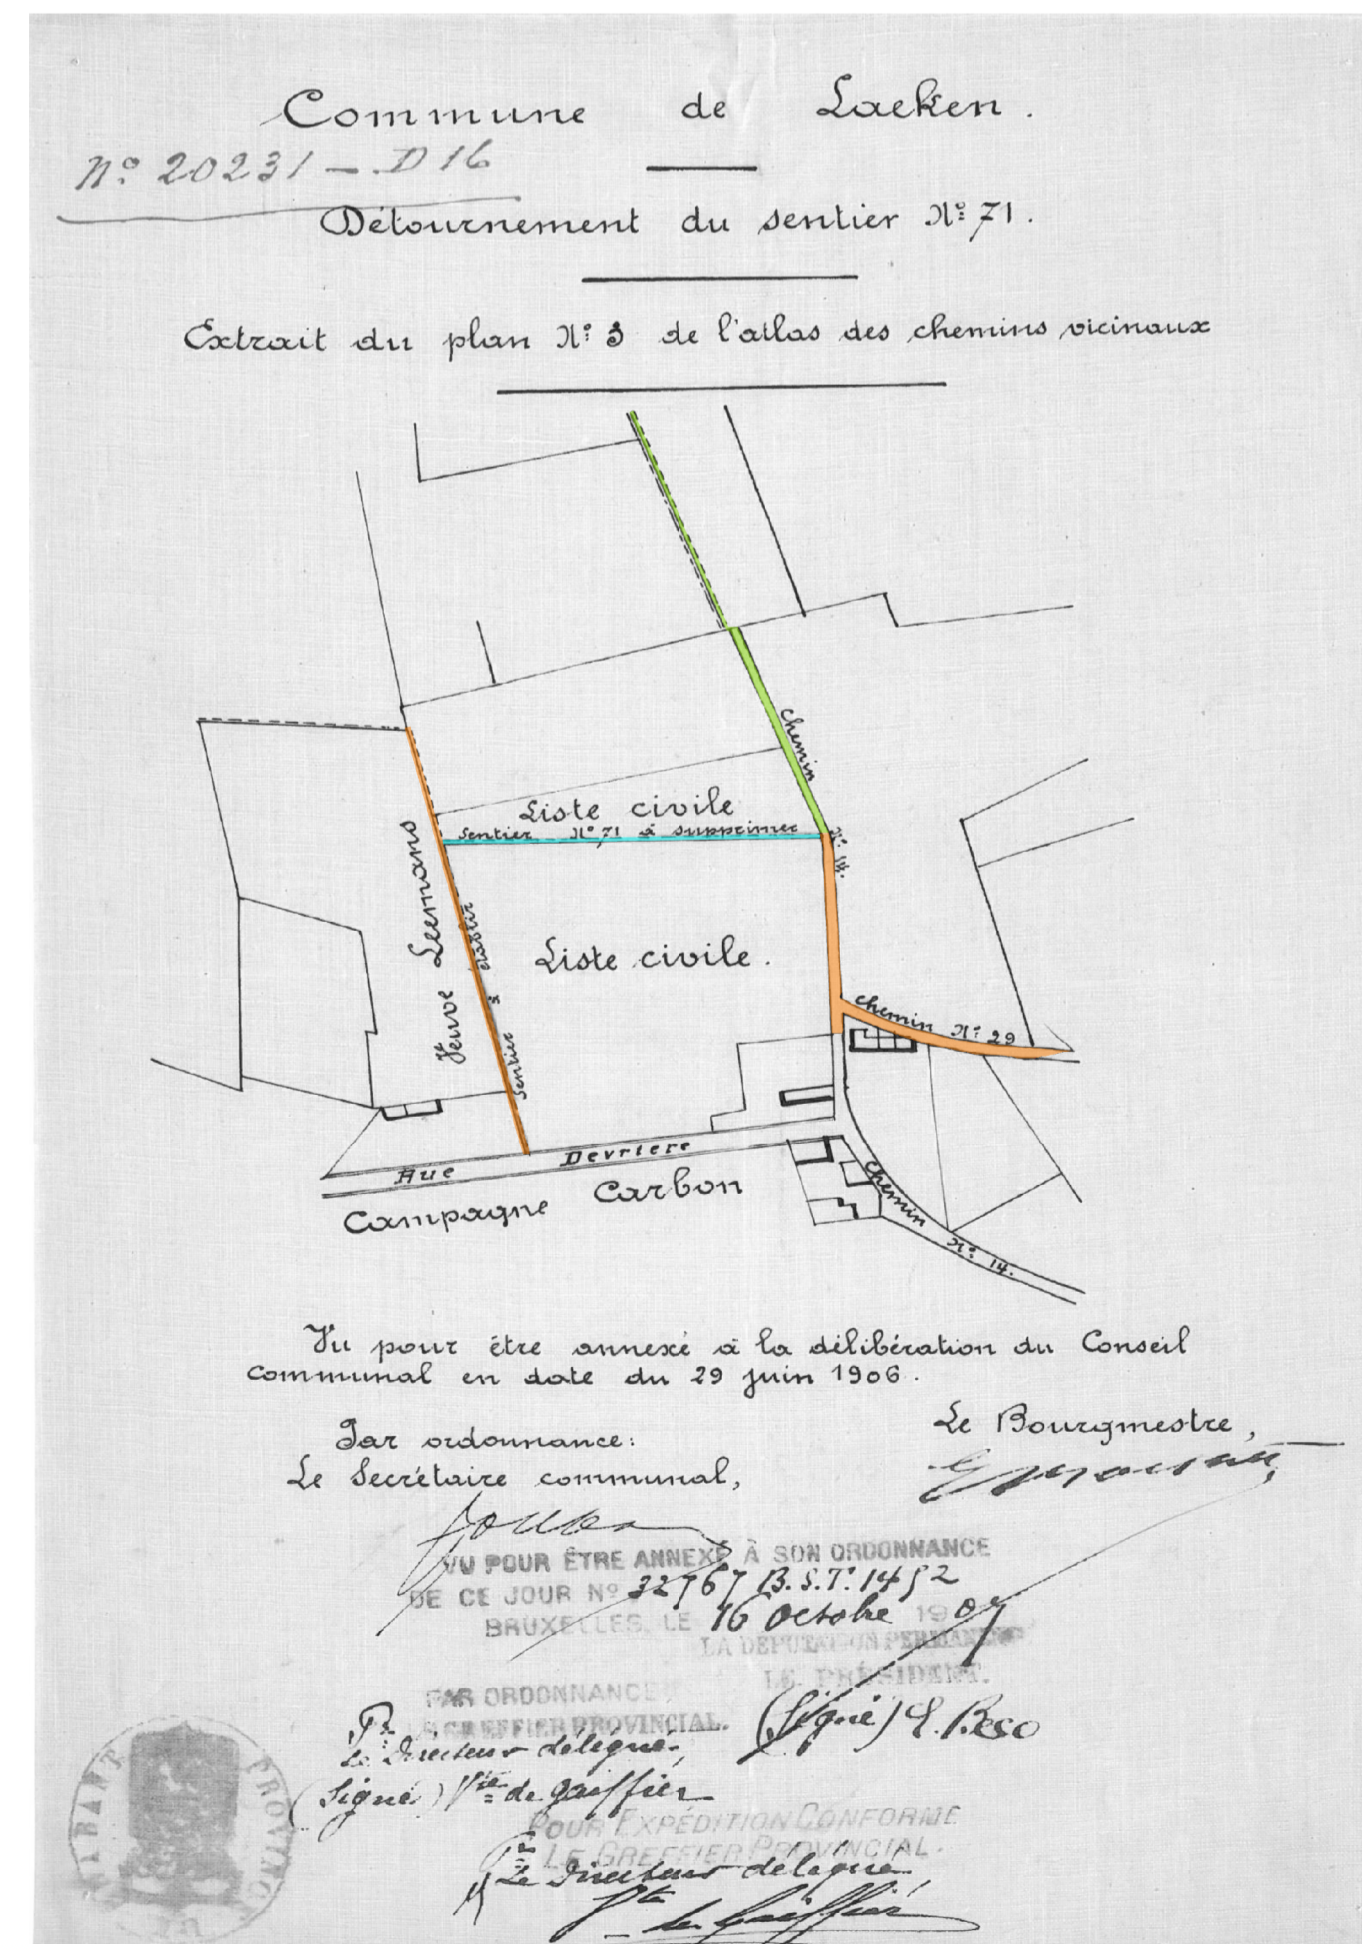 Commune de Laeken.
Nº 20231 – D 16
Détournement du sentier Nº 71.
Extrait du plan Nº 3 de l'atlas des chemins vicinaux
Chemin
Nº 14.
Liste civile
Sentier Nº 71 à supprimer
Veuve Leemans
Sentier à établir
Liste civile.
Chemin Nº 29
Rue Devriere
Campagne Carbon
Chemin Nº 14.
Vu pour être annexé à la délibération du Conseil
communal en date du 29 juin 1906.
Par ordonnance:
Le Secrétaire communal,
Le Bourgmestre,
VU POUR ÊTRE ANNEXÉ À SON ORDONNANCE
DE CE JOUR Nº 32767 B.S.T. 1452
BRUXELLES, LE 16 Octobre 1907
LA DÉPUTATION PERMANENTE
LE PRÉSIDENT.
(Signé) E. Beco
PAR ORDONNANCE
LE GREFFIER PROVINCIAL.
Pr Le Directeur délégué,
(Signé) Vte de Gaiffier
POUR EXPÉDITION CONFORME
LE GREFFIER PROVINCIAL.
Pr Le Directeur délégué
Vte de Gaiffier
BRABANT
PROVINCE